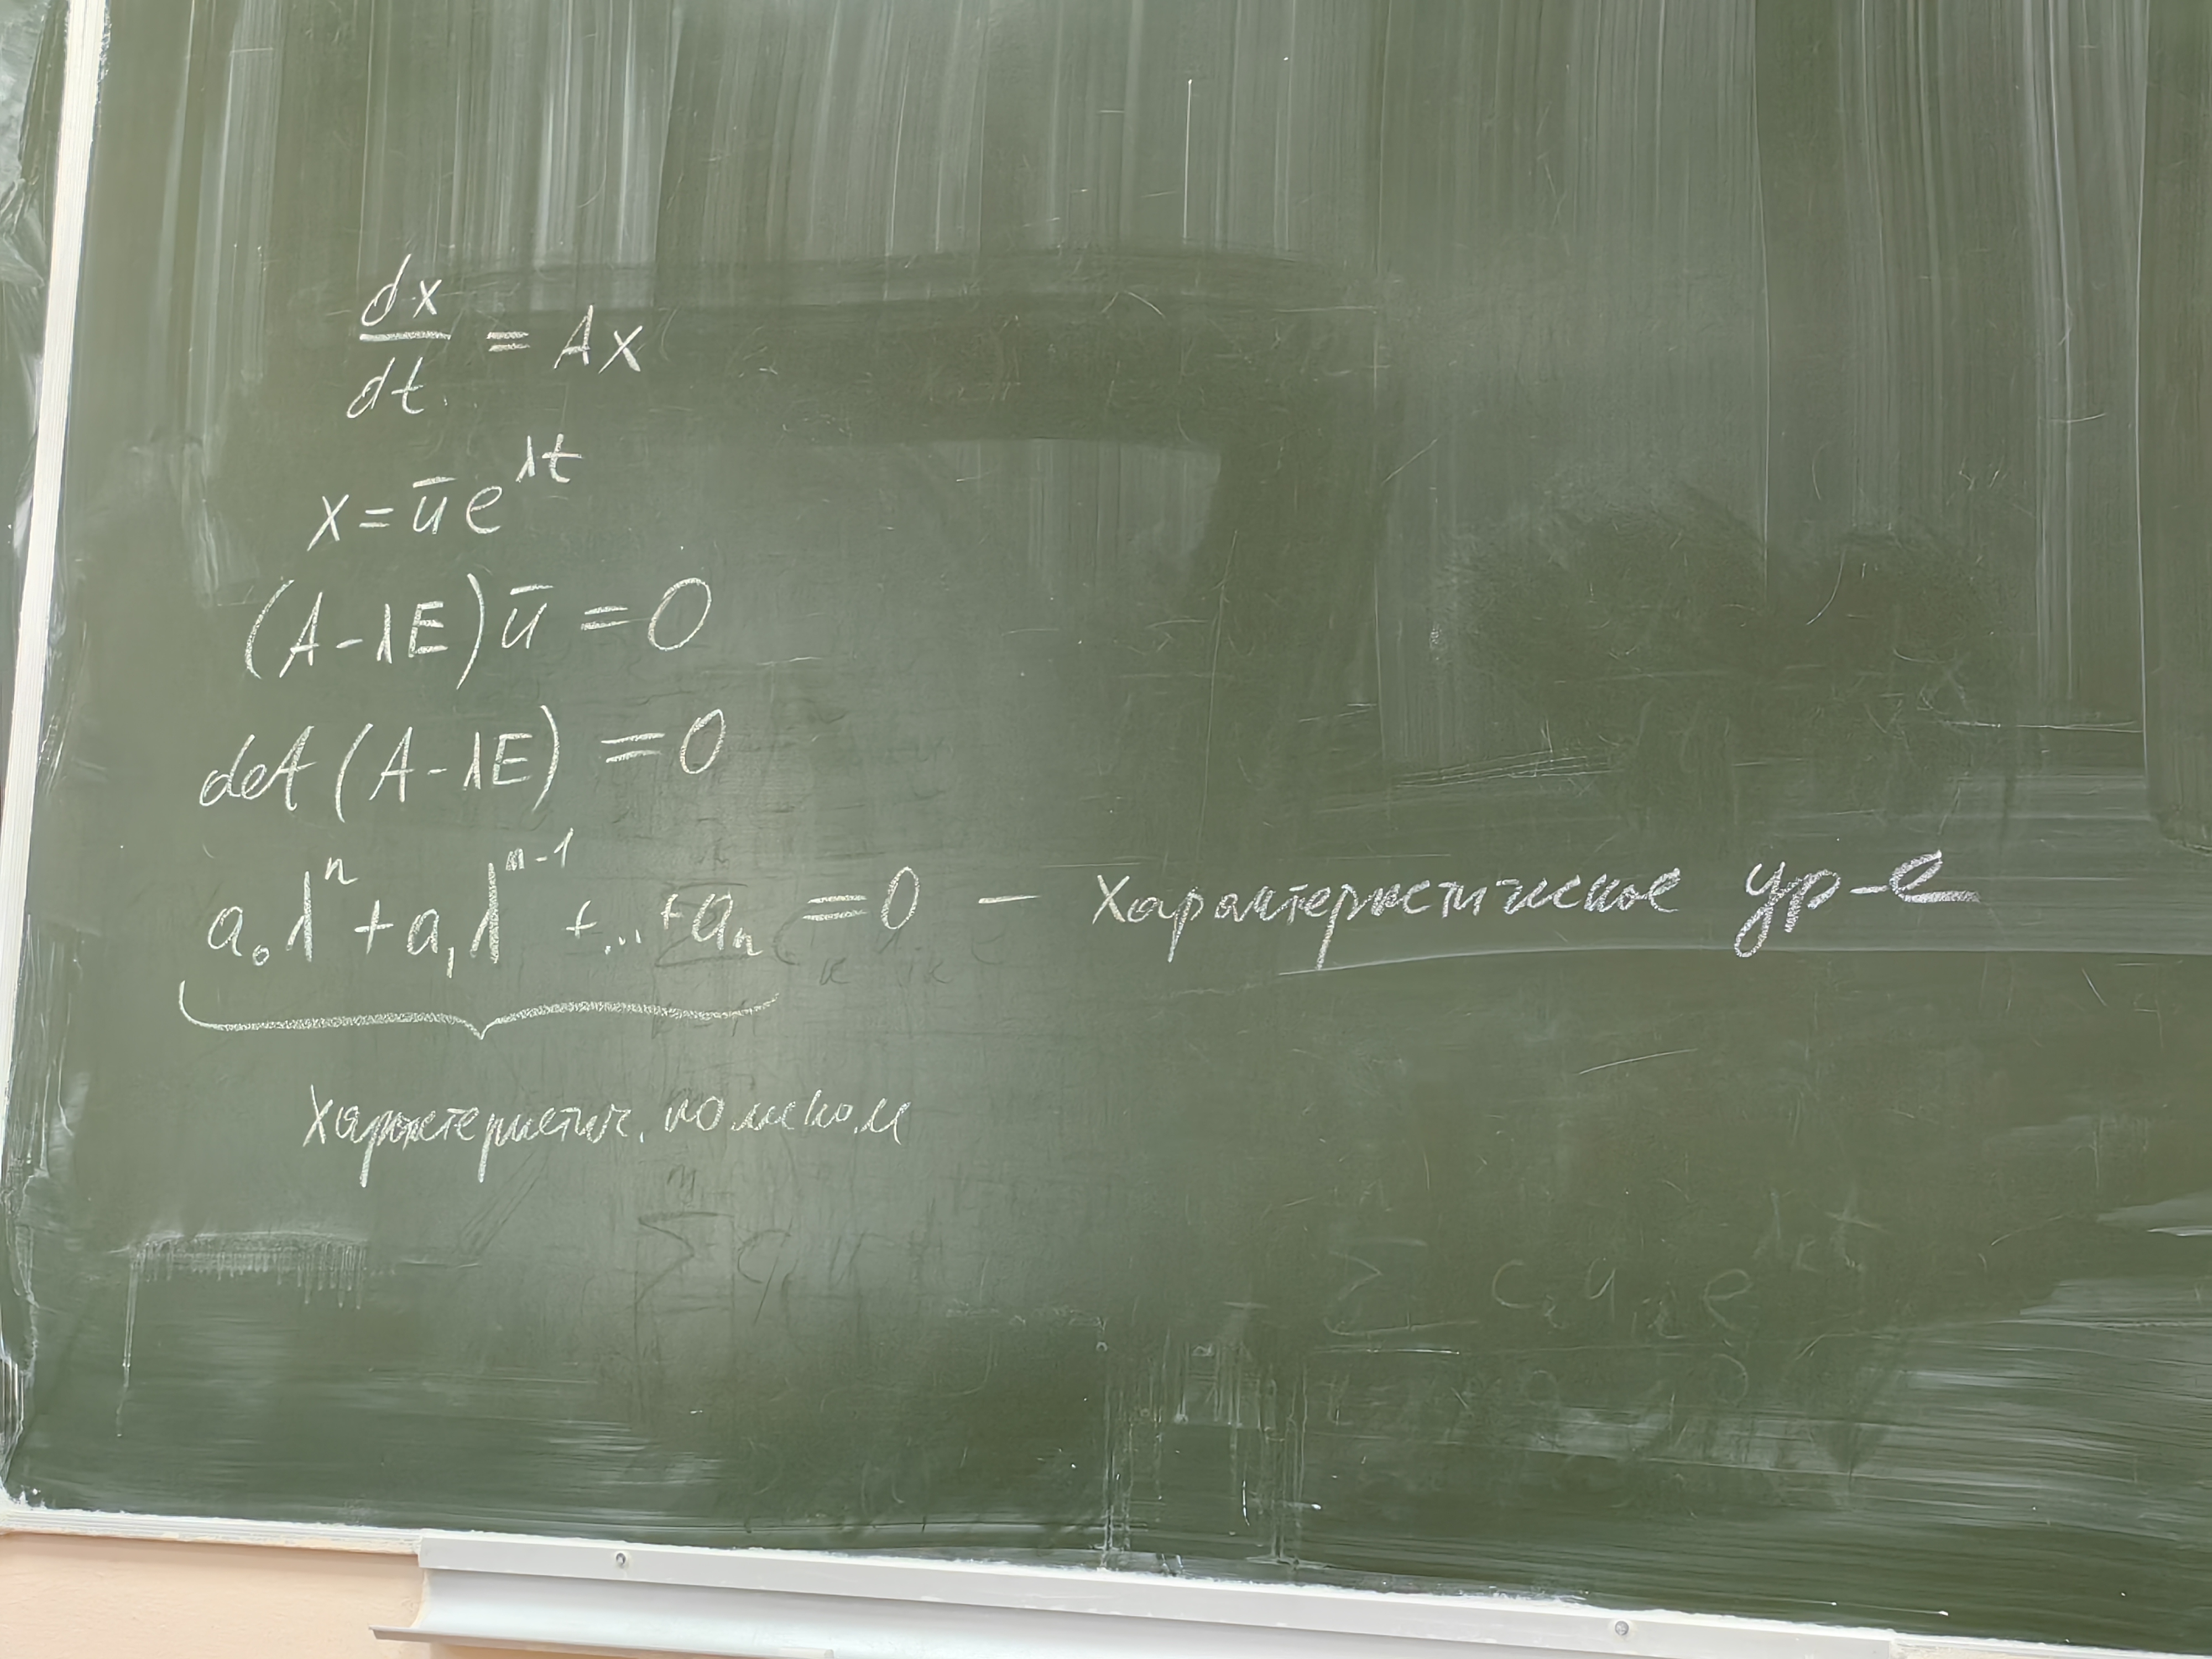 dx/dt = Ax
x = ū e^{λt}
(A - λE) ū = 0
det (A - λE) = 0
a₀λⁿ + a₁λⁿ⁻¹ + ... + aₙ = 0 — Характеристическое ур-е
Характеристич. полином